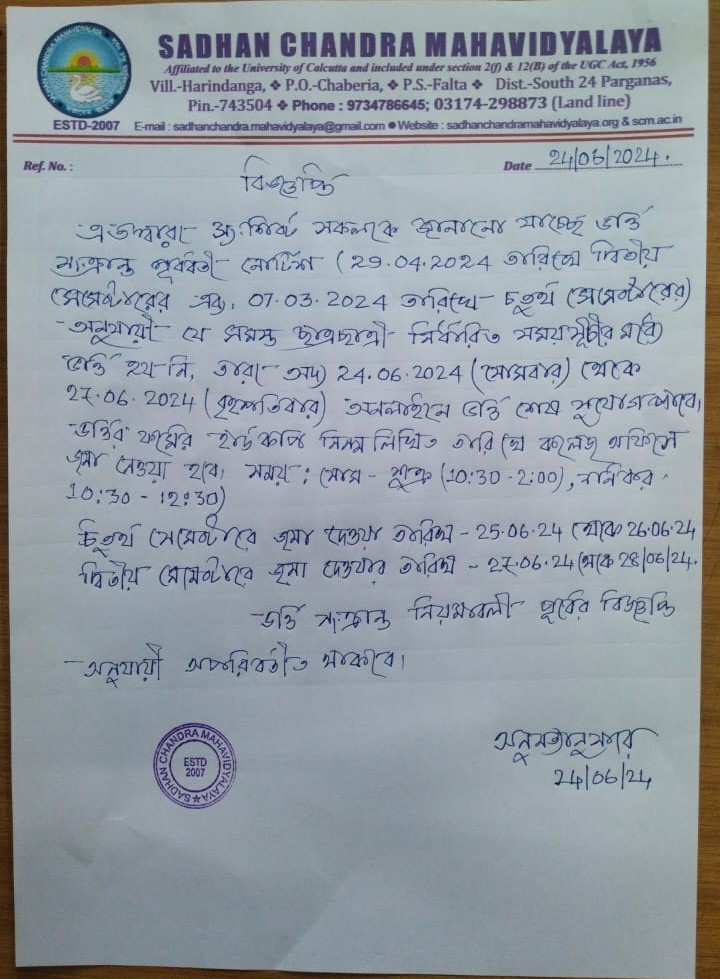 SADHAN CHANDRA MAHAVIDYALAYA
Affiliated to the University of Calcutta and included under section 2(f) & 12(B) of the UGC Act, 1956
Vill.-Harindanga, ❖ P.O.-Chaberia, ❖ P.S.-Falta ❖ Dist.-South 24 Parganas,
Pin.-743504 ❖ Phone : 9734786645; 03174-298873 (Land line)
ESTD-2007 E-mail : sadhanchandra.mahavidyalaya@gmail.com ● Website : sadhanchandramahavidyalaya.org & scm.ac.in
Ref. No. : Date 24/06/2024.
বিজ্ঞপ্তি
এতদ্বারা সংশ্লিষ্ট সকলকে জানানো যাচ্ছে ভর্তি
সংক্রান্ত পূর্ববর্তী নোটিশ (29.04.2024 তারিখে দ্বিতীয়
সেমেস্টারের এবং 07.03.2024 তারিখে চতুর্থ সেমেস্টারের)
অনুযায়ী যে সমস্ত ছাত্রছাত্রী নির্ধারিত সময়সূচীর মধ্যে
ভর্তি হয় নি, তারা অদ্য 24.06.2024 (সোমবার) থেকে
27.06.2024 (বৃহস্পতিবার) অনলাইনে ভর্তি শেষ সুযোগ পাবে।
ভর্তির ফর্মের হার্ড কপি নিম্ন লিখিত তারিখে কলেজ অফিসে
জমা দেওয়া হবে। সময় : সোম - শুক্র (10:30 - 2:00), শনিবার
10:30 - 12:30)
চতুর্থ সেমেস্টারে জমা দেওয়া তারিখ - 25.06.24 থেকে 26.06.24
দ্বিতীয় সেমেস্টারে জমা দেওয়ার তারিখ - 27.06.24 থেকে 28/06/24.
ভর্তি সংক্রান্ত নিয়মাবলী পূর্বের বিজ্ঞপ্তি
অনুযায়ী অপরিবর্তীত থাকবে।
অনুমত্যানুসারে
24/06/24
SADHAN CHANDRA MAHAVIDYALAYA
ESTD
2007